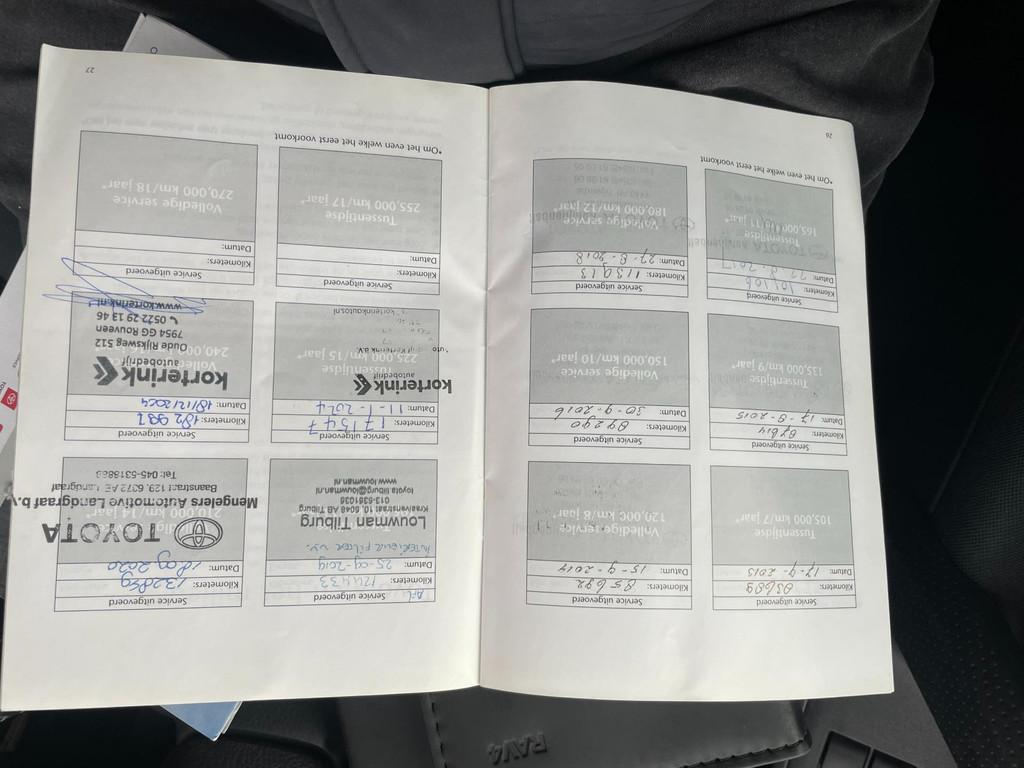 Service uitgevoerd
Kilometers:
Datum: 17-9-2013
Tussentijdse
105,000 km/7 jaar*
Service uitgevoerd
Kilometers: 85692
Datum: 15-9-2014
Volledige service
120,000 km/ 8 jaar*
Service uitgevoerd
Kilometers: 87614
Datum: 17-8-2015
Tussentijdse
135,000 km/9 jaar*
Service uitgevoerd
Kilometers: 89290
Datum: 30-9-2016
Volledige service
150,000 km/10 jaar*
Service uitgevoerd
Kilometers: 101106
Datum: 22-8-2017
Tussentijdse
165,000 km/11 jaar*
TOYOTA
Service uitgevoerd
Kilometers: 113913
Datum: 27-8-2018
Volledige service
180,000 km/12 jaar*
*Om het even welke het eerst voorkomt
26
Service uitgevoerd
Kilometers: 124433
Datum: 25-09-2019
INTERIEUR FILTER VV.
Louwman Tilburg
Kraaivenstraat 10, 5048 AB Tilburg
013-5361036
toyota.tilburg@louwman.nl
www.louwman.nl
Service uitgevoerd
Kilometers: 132859
Datum: 18 09 2020
TOYOTA
Volledige service
210,000 km/14 jaar*
Mengelers Automotive Landgraaf b.v.
Baanstraat 129, 6372 AE Landgraaf
Tel: 045-5318888
Service uitgevoerd
Kilometers: 171547
Datum: 11-1-2024
korterink
autobedrijf
225,000 km/15 jaar*
korterink B.V.
korterinkautos.nl
Service uitgevoerd
Kilometers: 182992
Datum: 18/12/2024
korterink
autobedrijf
240,000 km/16 jaar*
Oude Rijksweg 512
7954 GG Rouveen
0522 29 13 46
www.korterink.nl
Service uitgevoerd
Kilometers:
Datum:
Tussentijdse
255,000 km/17 jaar*
Service uitgevoerd
Kilometers:
Datum:
Volledige service
270,000 km/18 jaar*
*Om het even welke het eerst voorkomt
27
RAV4